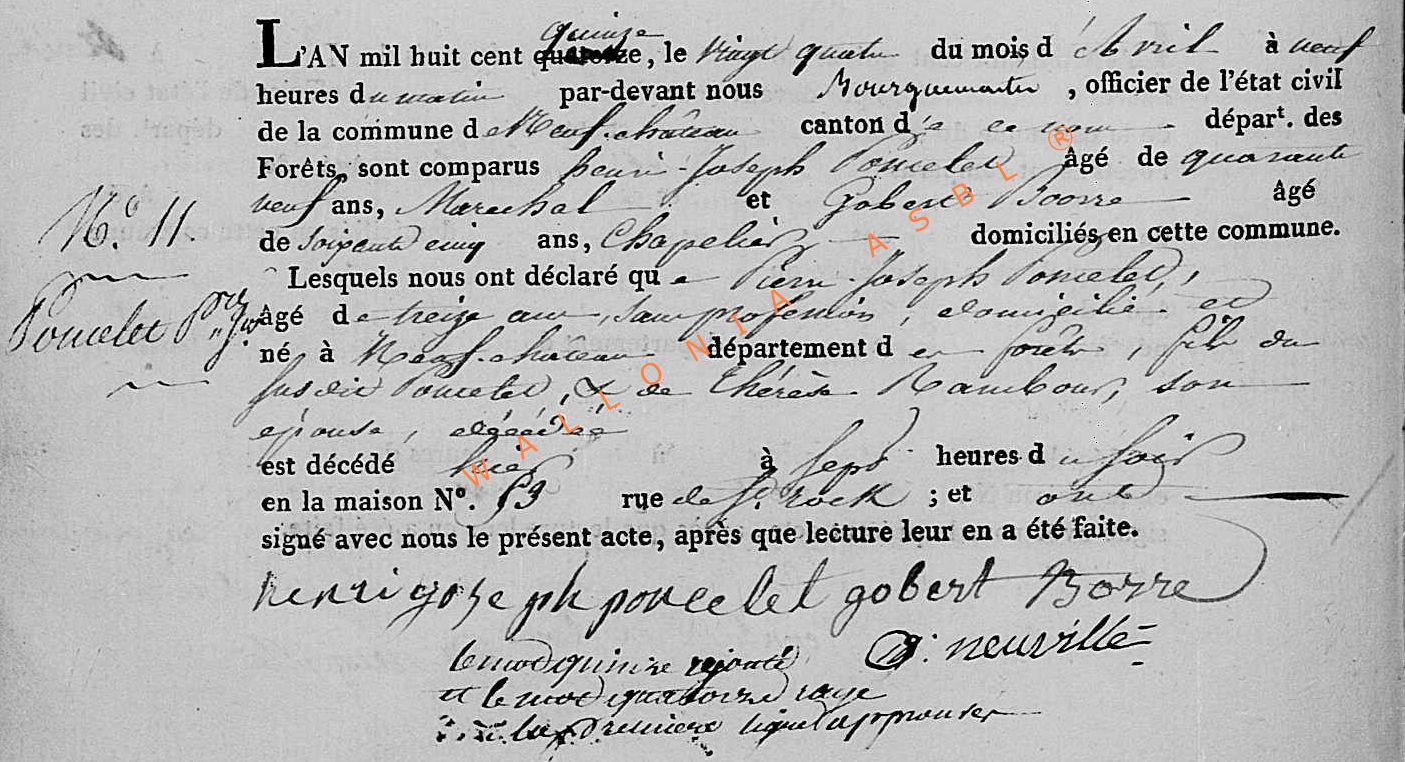 L'AN mil huit cent quatorze quinze, le vingt quatre du mois d'Avril à neuf
heures du matin par-devant nous Bourguemaitre, officier de l'état civil
de la commune de Neuf-château canton de ce nom départ. des
Forêts, sont comparus henri-Joseph Poncelet âgé de quarante
neuf ans, Marechal et Gobert Borre âgé
de soixante cinq ans, Chapelier domiciliés en cette commune.
N.o 11.
Lesquels nous ont déclaré que Pierre-Joseph Poncelet,
Poncelet Prre Jph
âgé de treize ans, sans profession, domicilié et
né à Neuf-château département des forêts, fils du
susdit Poncelet, & de Thérèse Rambour, son
épouse, décédé
est décédé hier à sept heures du soir
en la maison No. 53 rue de St. rock ; et ont
signé avec nous le présent acte, après que lecture leur en a été faite.
henri joseph poncelet gobert Borre
neuville
le mot quinze rejouté
et le mot quatorze raye
a la premiere ligne approuver
WALLONIA ASBL ®